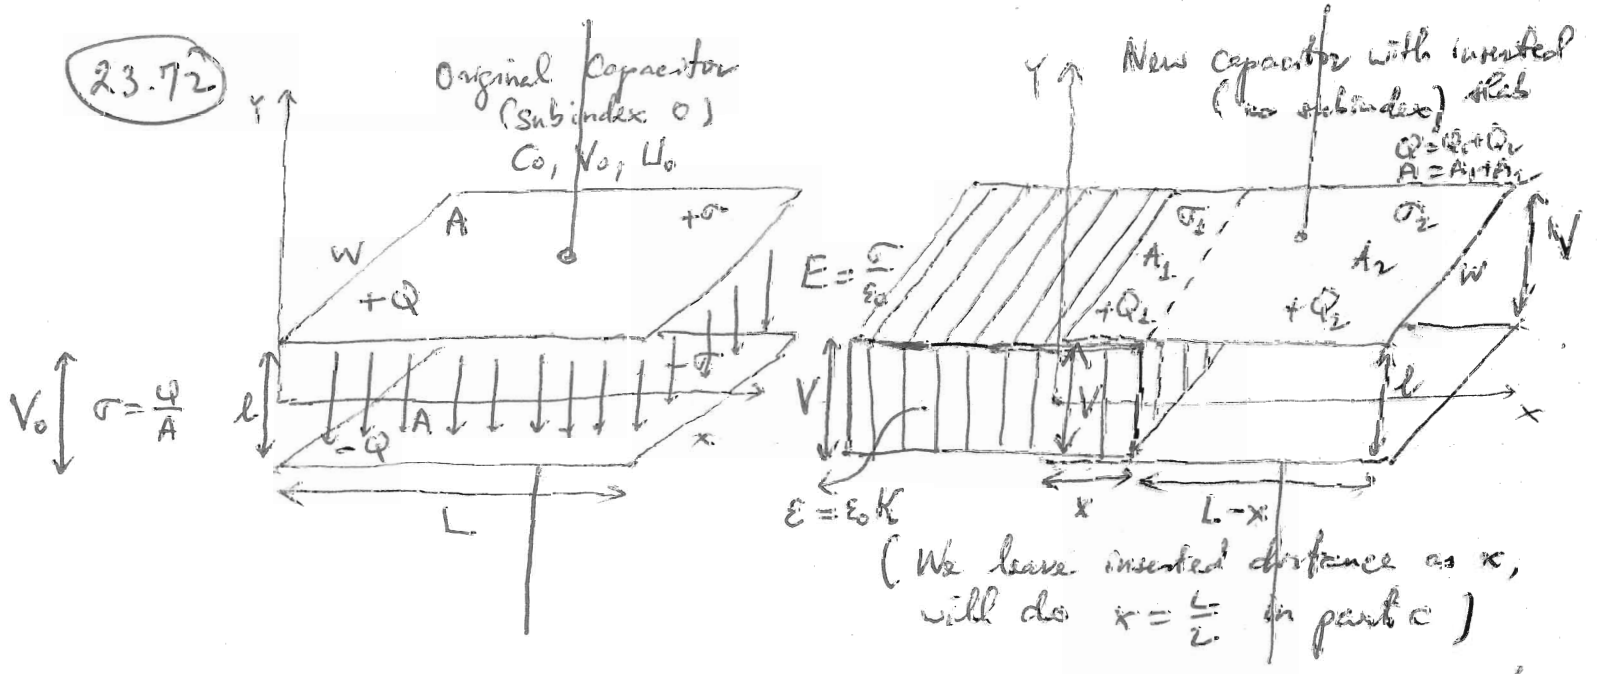 23.72
Original Capacitor
(Subindex 0)
C₀, V₀, U₀
Y
A
+σ
W
+Q
V₀
σ = Q/A
l
-σ
A
-Q
x
L
E = σ/ε₀
New capacitor with inserted
slab
(no subindex)
Q = Q₁+Q₂
A = A₁+A₂
Y
σ₁
σ₂
A₁
A₂
W
V
+Q₁
+Q₂
V
V
l
x
x
L-x
ε = ε₀K
(We leave inserted distance as x,
will do x = L/2 in part c)